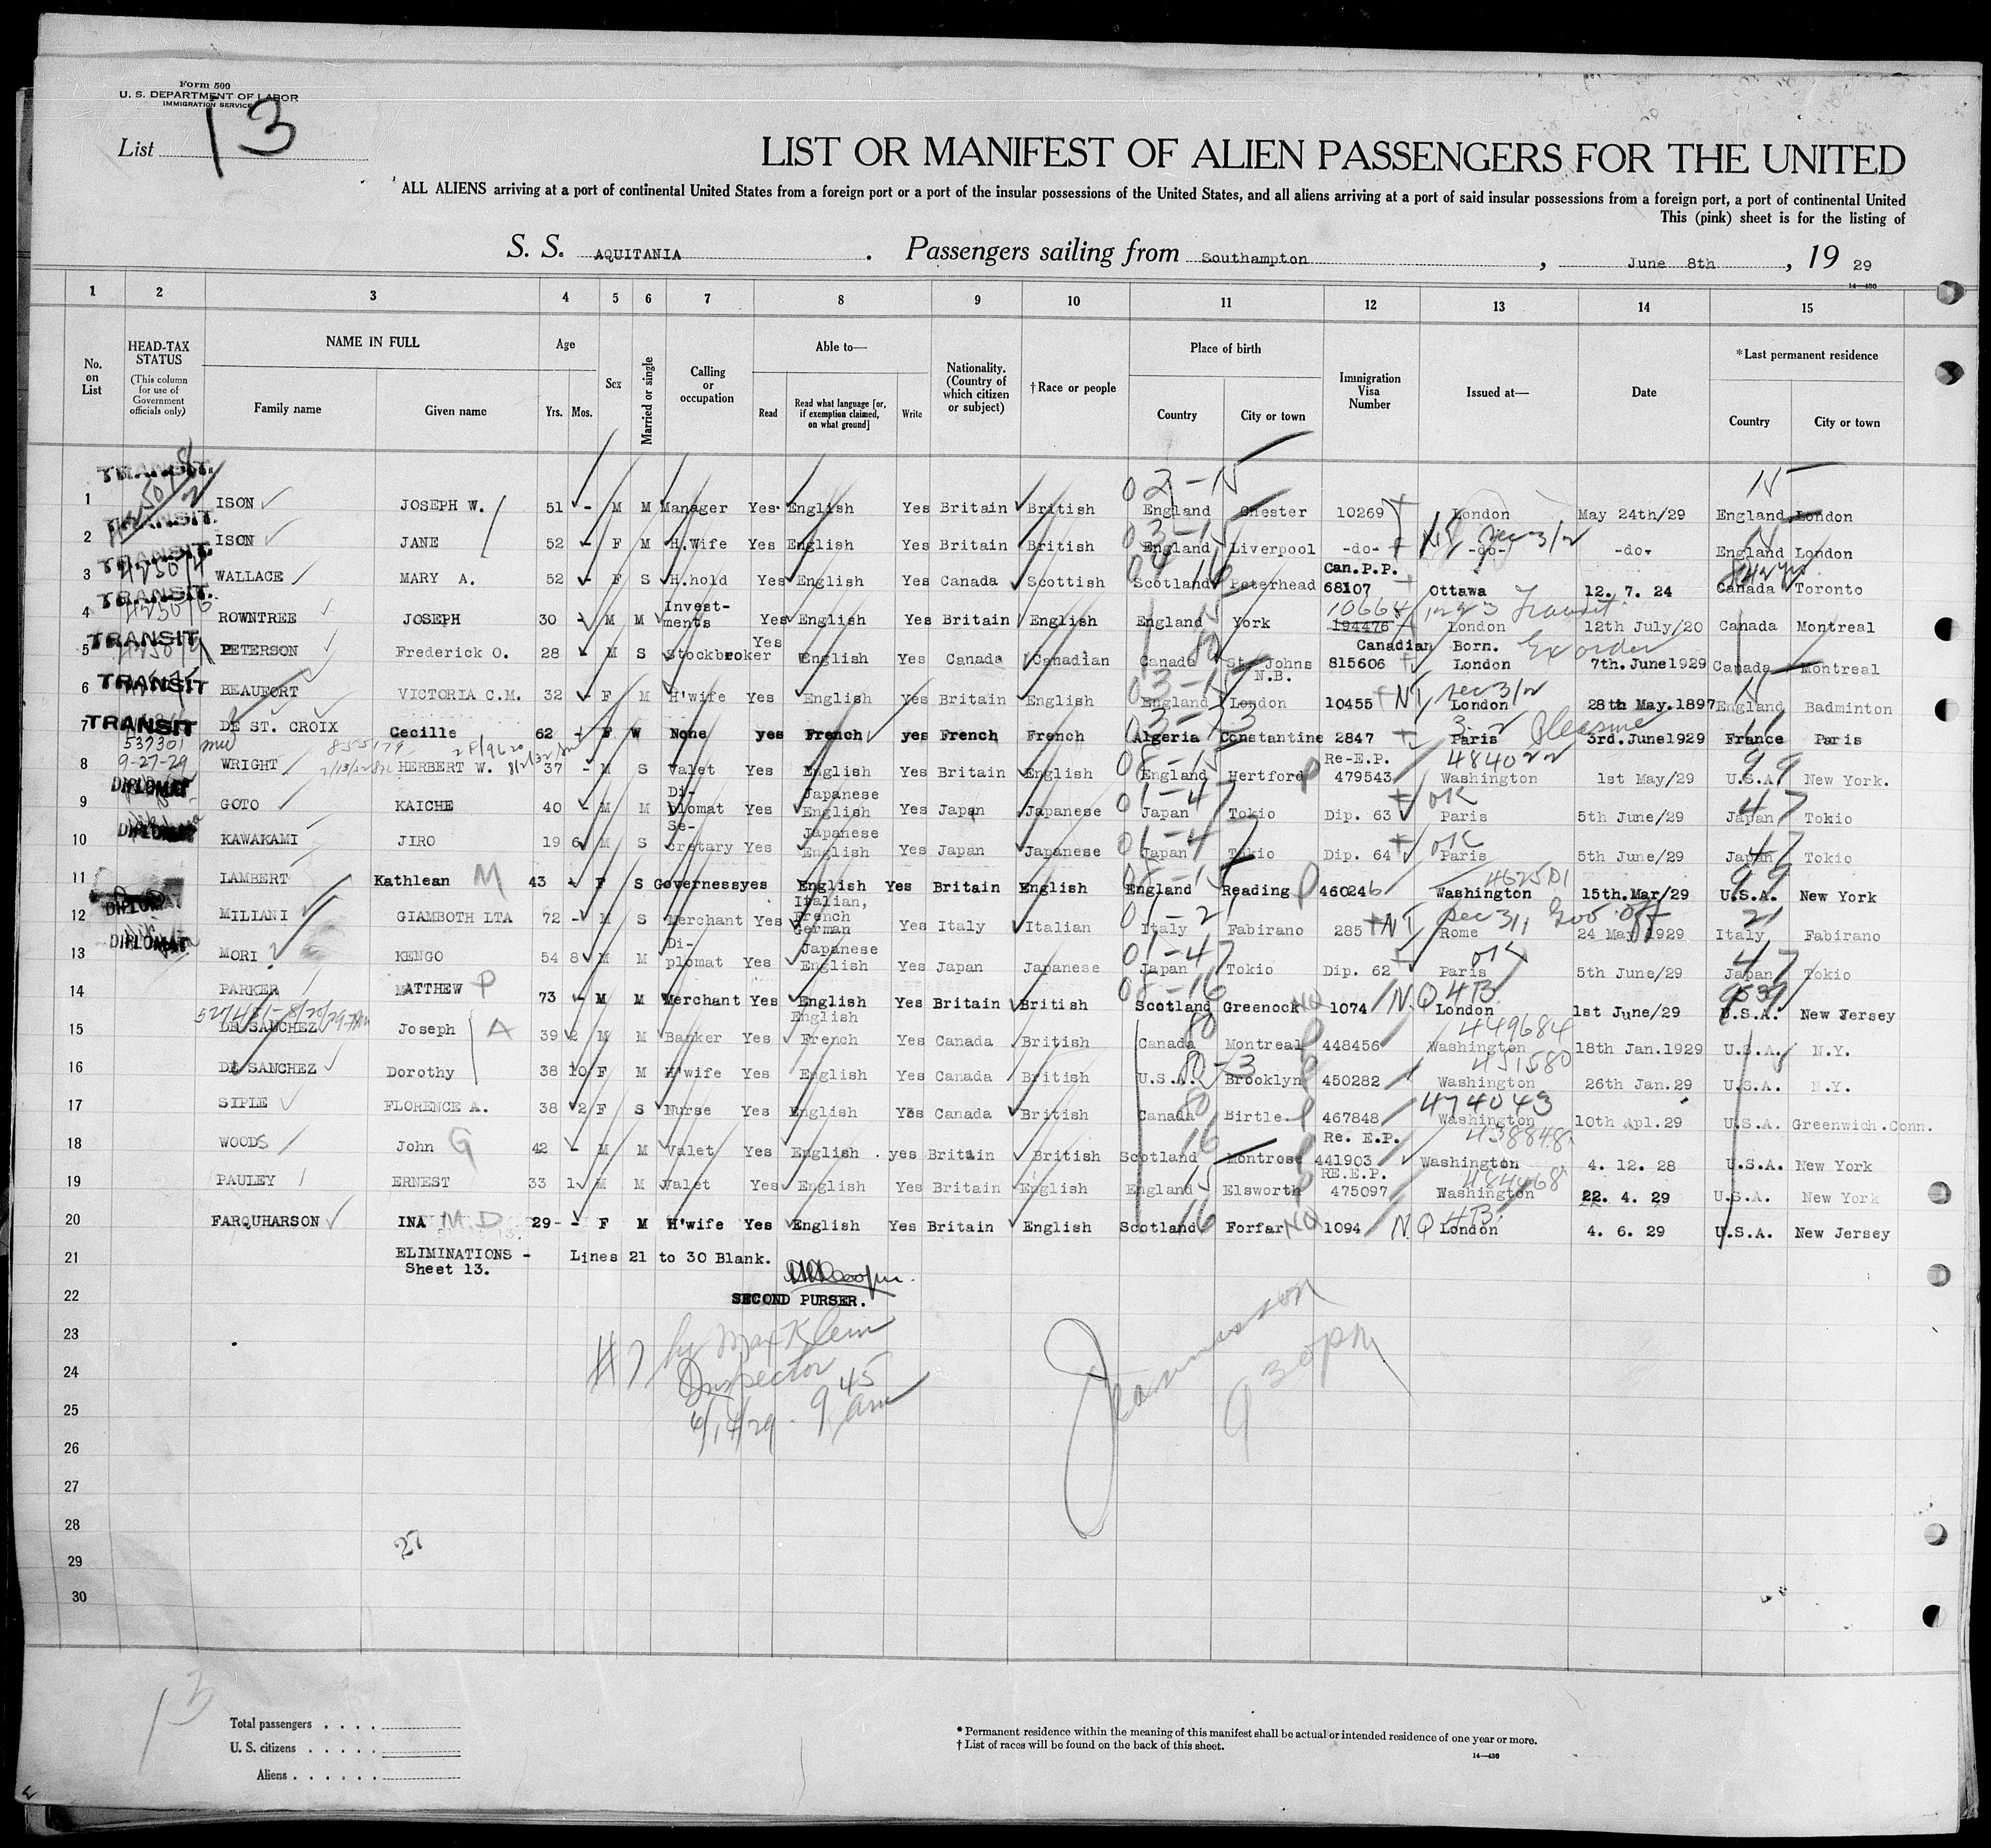 Form 500
U. S. DEPARTMENT OF LABOR
IMMIGRATION SERVICE
List 13
LIST OR MANIFEST OF ALIEN PASSENGERS FOR THE UNITED
ALL ALIENS arriving at a port of continental United States from a foreign port or a port of the insular possessions of the United States, and all aliens arriving at a port of said insular possessions from a foreign port, a port of continental United
This (pink) sheet is for the listing of
S. S. AQUITANIA . Passengers sailing from Southampton , June 8th , 19 29
14—430
1 2 3 4 5 6 7 8 9 10 11 12 13 14 15
No. on List
HEAD-TAX STATUS
(This column for use of Government officials only)
NAME IN FULL
Family name Given name
Age
Yrs. Mos.
Sex
Married or single
Calling or occupation
Able to—
Read
Read what language [or, if exemption claimed, on what ground]
Write
Nationality. (Country of which citizen or subject)
† Race or people
Place of birth
Country City or town
Immigration Visa Number
Issued at—
Date
*Last permanent residence
Country City or town
TRANSIT.
02-15 15
1 ISON JOSEPH W. 51 - M M Manager Yes. English Yes Britain British England Chester 10269 London May 24th/29 England London
TRANSIT.
2 ISON JANE 52 - F M H.Wife Yes English Yes Britain British England Liverpool -do- -do- -do- England London
TRANSIT.
3 WALLACE MARY A. 52 - F S H.hold Yes English Yes Canada Scottish Scotland Peterhead Can.P.P. 68107 Ottawa 12. 7. 24 Canada Toronto
TRANSIT.
4 ROWNTREE JOSEPH 30 - M M Invest-ments Yes English Yes Britain English England York 10664 194476 London Transit 12th July/20 Canada Montreal
TRANSIT.
Canadian Born. Ex order
5 PETERSON Frederick O. 28 - M S Stockbroker Yes English Yes Canada Canadian Canada St. Johns N.B. 815606 London 7th. June1929 Canada Montreal
TRANSIT
6 BEAUFORT VICTORIA C.M. 32 - F M H'wife Yes English Yes Britain English England London 10455 NT London 28th May.1897 England Badminton
TRANSIT
7 DE ST. CROIX Cecille 62 - F W None yes French yes French French Algeria Constantine 2847 Paris Pleasure 3rd. June1929 France Paris
537301
9-27-29
8 WRIGHT HERBERT W. 37 - M S Valet Yes English Yes Britain English England Hertford Re-E.P. 479543 484022 Washington 1st May/29 U.S.A. New York.
DIPLOMAT
9 GOTO KAICHE 40 - M M Di-plomat Yes Japanese English Yes Japan Japanese Japan Tokio Dip. 63 OK Paris 5th June/29 Japan Tokio
DIPLOMAT
10 KAWAKAMI JIRO 19 6 M S Se-cretary Yes Japanese English Yes Japan Japanese Japan Tokio Dip. 64 OK Paris 5th June/29 Japan Tokio
11 LAMBERT Kathlean M 43 - F S Governess yes English Yes Britain English England Reading 460246 Washington 15th.Mar/29 U.S.A. New York
DIPLOMAT
12 MILIANI GIAMBOTH LTA 72 - M S Merchant Yes Italian, French German Yes Italy Italian Italy Fabirano 285 NT Rome 24 May 1929 Italy Fabirano
DIPLOMAT
13 MORI KENGO 54 8 M M Di-plomat Yes Japanese English Yes Japan Japanese Japan Tokio Dip. 62 OK Paris 5th June/29 Japan Tokio
14 PARKER MATTHEW P 73 - M M Merchant Yes English Yes Britain British Scotland Greenock NQ 1074 N.Q 4B London 1st June/29 U.S.A. New Jersey
15 DE SANCHEZ Joseph A 39 2 M M Banker Yes English French Yes Canada British Canada Montreal 448456 449684 Washington 18th Jan.1929 U.S.A. N.Y.
16 DE SANCHEZ Dorothy 38 10 F M H'wife Yes English Yes Canada British U.S.A. Brooklyn 450282 451580 Washington 26th Jan.29 U.S.A. N.Y.
17 SIPLE FLORENCE A. 38 2 F S Nurse Yes English Yes Canada British Canada Birtle 467848 474043 Washington 10th Apl.29 U.S.A. Greenwich.Conn.
18 WOODS John G 42 - M M Valet Yes English yes Britain British Scotland Montrose Re. E.P. 441903 Washington 4. 12. 28 U.S.A. New York
19 PAULEY ERNEST 33 1 M M Valet Yes English Yes Britain English England Elsworth RE.E.P. 475097 484468 Washington 22. 4. 29 U.S.A. New York
20 FARQUHARSON INA M.D 29 - F M H'wife Yes English Yes Britain English Scotland Forfar NQ 1094 N.Q 4B London 4. 6. 29 U.S.A. New Jersey
21 ELIMINATIONS - Lines 21 to 30 Blank.
Sheet 13.
22 SECOND PURSER.
23
#7 by Max Klein
24 Inspector
25 6/14/29 - 9 45 am
9 30 pm
26
27
28
27
29
30
13
Total passengers . . . .
U. S. citizens . . . . .
Aliens . . . . . .
* Permanent residence within the meaning of this manifest shall be actual or intended residence of one year or more.
† List of races will be found on the back of this sheet.
14—430